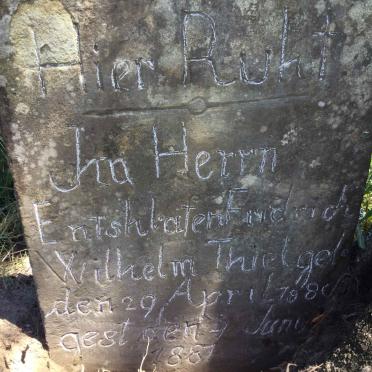 Hier Ruht
Im Herrn
Entshlafen Friedrich
Wilhelm Thiel geb
den 29 April 1808
gest den 9 Juni
1861